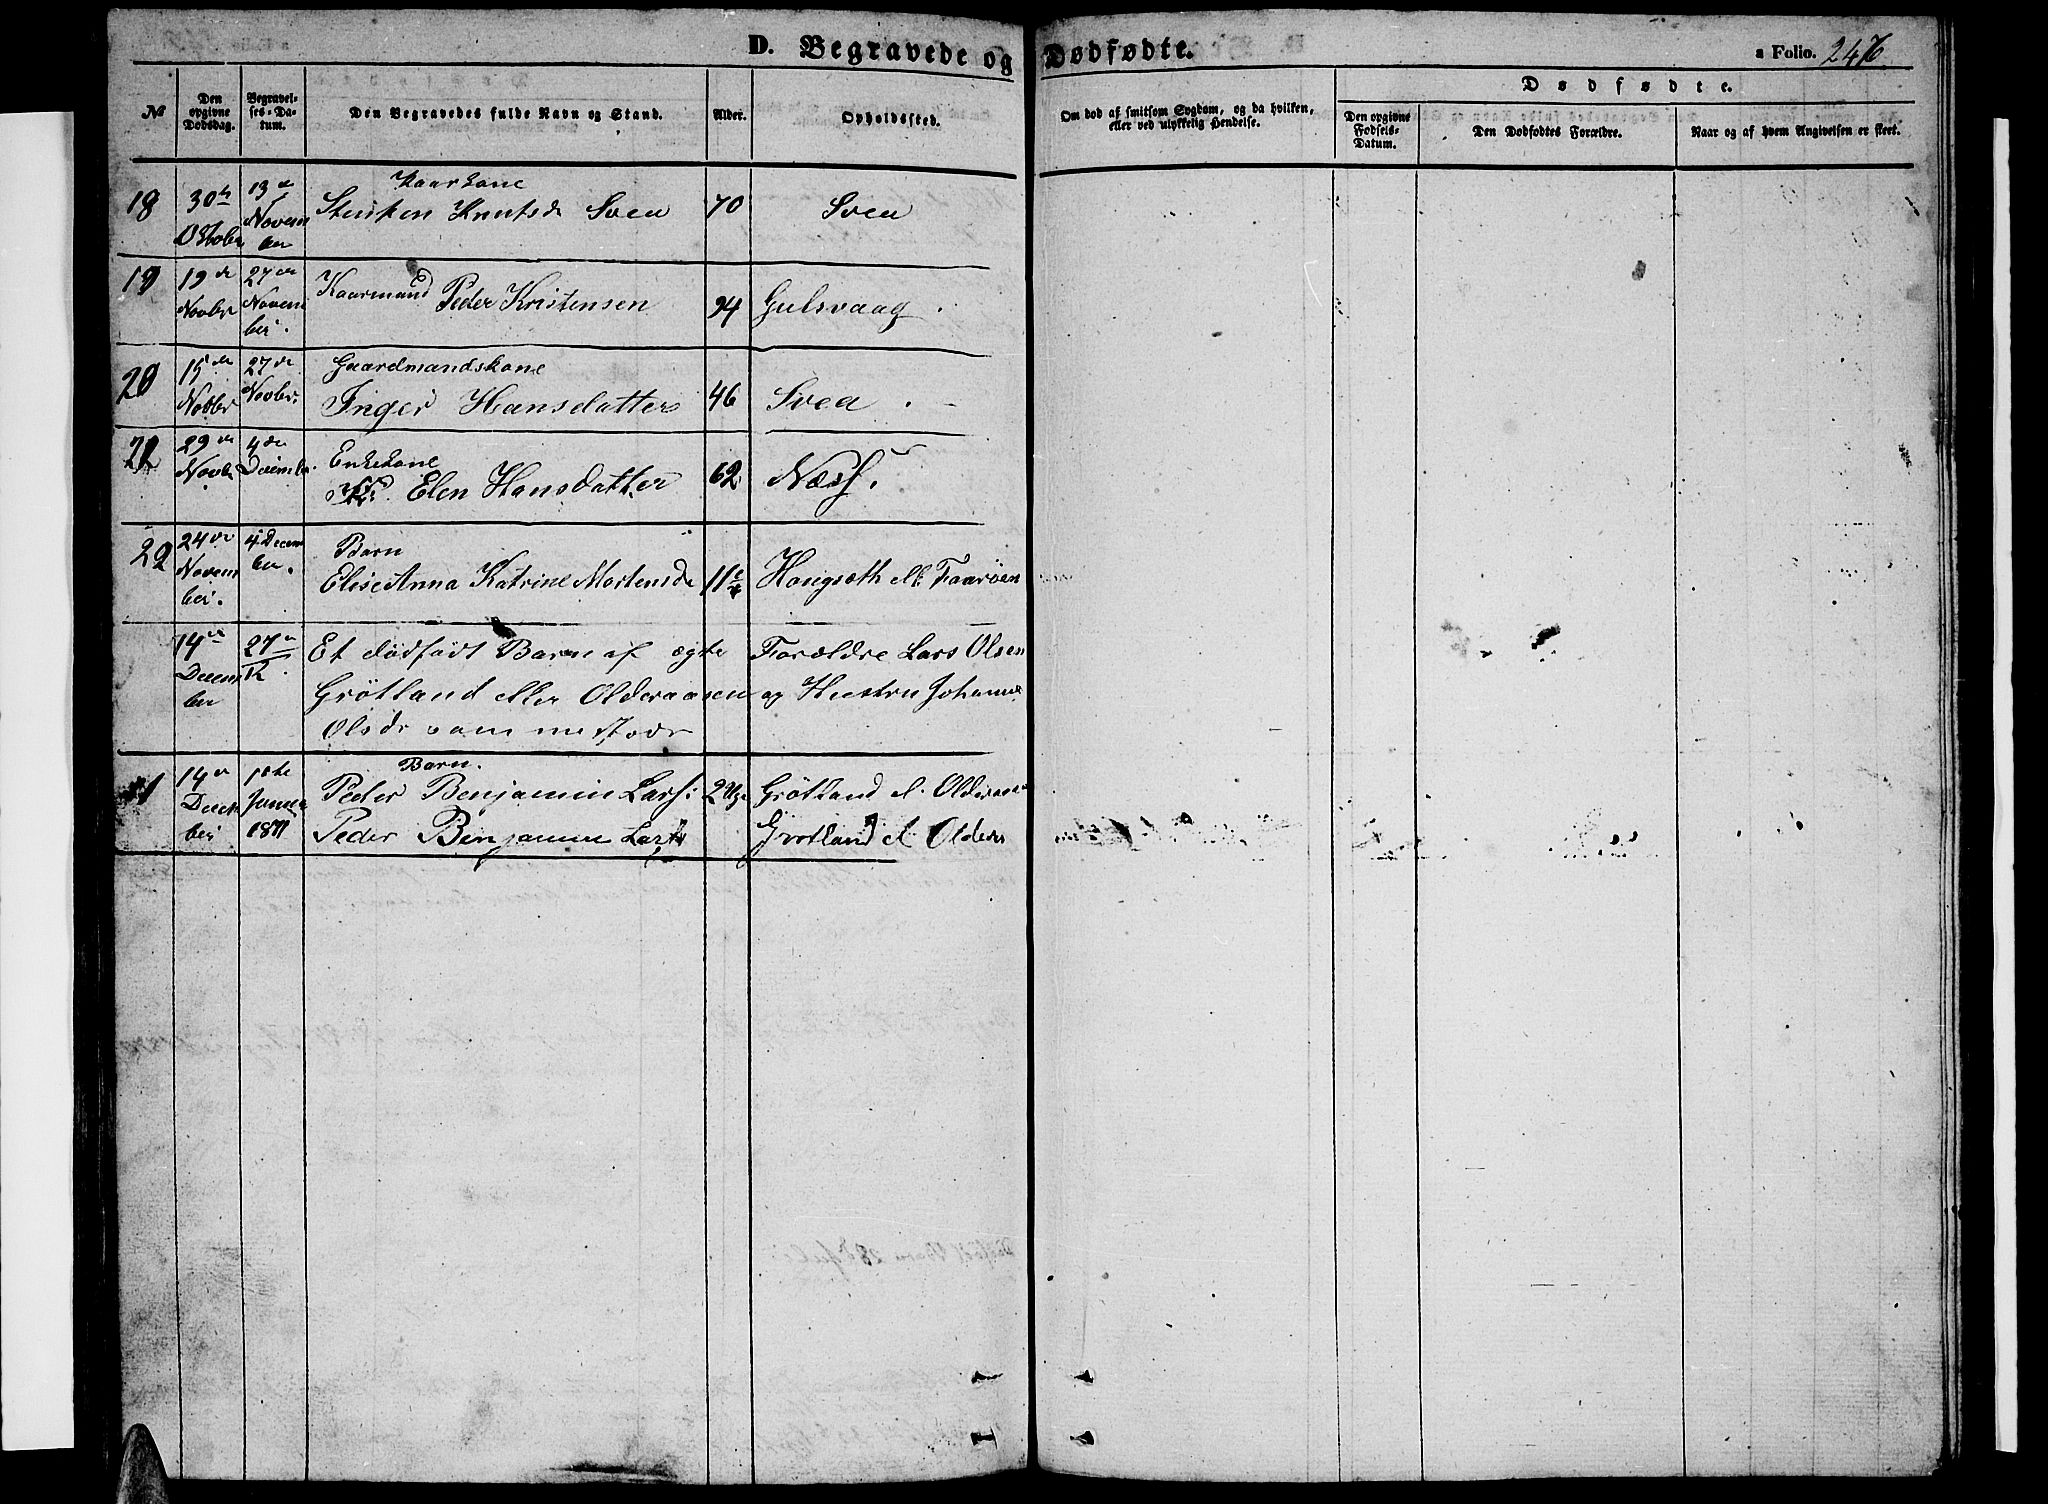 D. Begravede og Dødfødte.
a Folio. 246
№
Den opgivne Dødsdag.
Begravelses-Datum.
Den Begravedes fulde Navn og Stand.
Alder.
Opholdssted.
Om død af smitsom Sygdom, og da hvilken, eller ved ulykkelig Hendelse.
Dødfødte.
Den opgivne Fødsels-Datum.
Den Dødfødtes Forældre.
Naar og af hvem Angivelsen er skeet.
Kaarkone
18 30te Oktober 13de November Knutsd Svea 70 Svea
19 19de Novbr 27de November Kaarmand Peder Kristensen 94 Gulsvaag
20 15de Novbr 27de Novbr. Gaardmandskone
Inger Hansdatter 46 Svea
29de Novbr 4de Decembr. Enkekone
Elen Hansdatter 62 Næss.
22 24de November 4 December. Barn
Elise Anna Katrine Mortensdr 11 Haugsæth el. Faarøen
14de December 27/12 Et dødfødt Barn af ægte Forældre Lars Olsen
Grøtland eller Olderaasen og Hustru Johanna
Olsdr sammestedr
Barn.
14de December 1ste Januar 1871 Peder Benjamin Lars: 2 Uger Grøtland el. Olderaasen
Peder Benjamin Lars Grøtland el Olderas